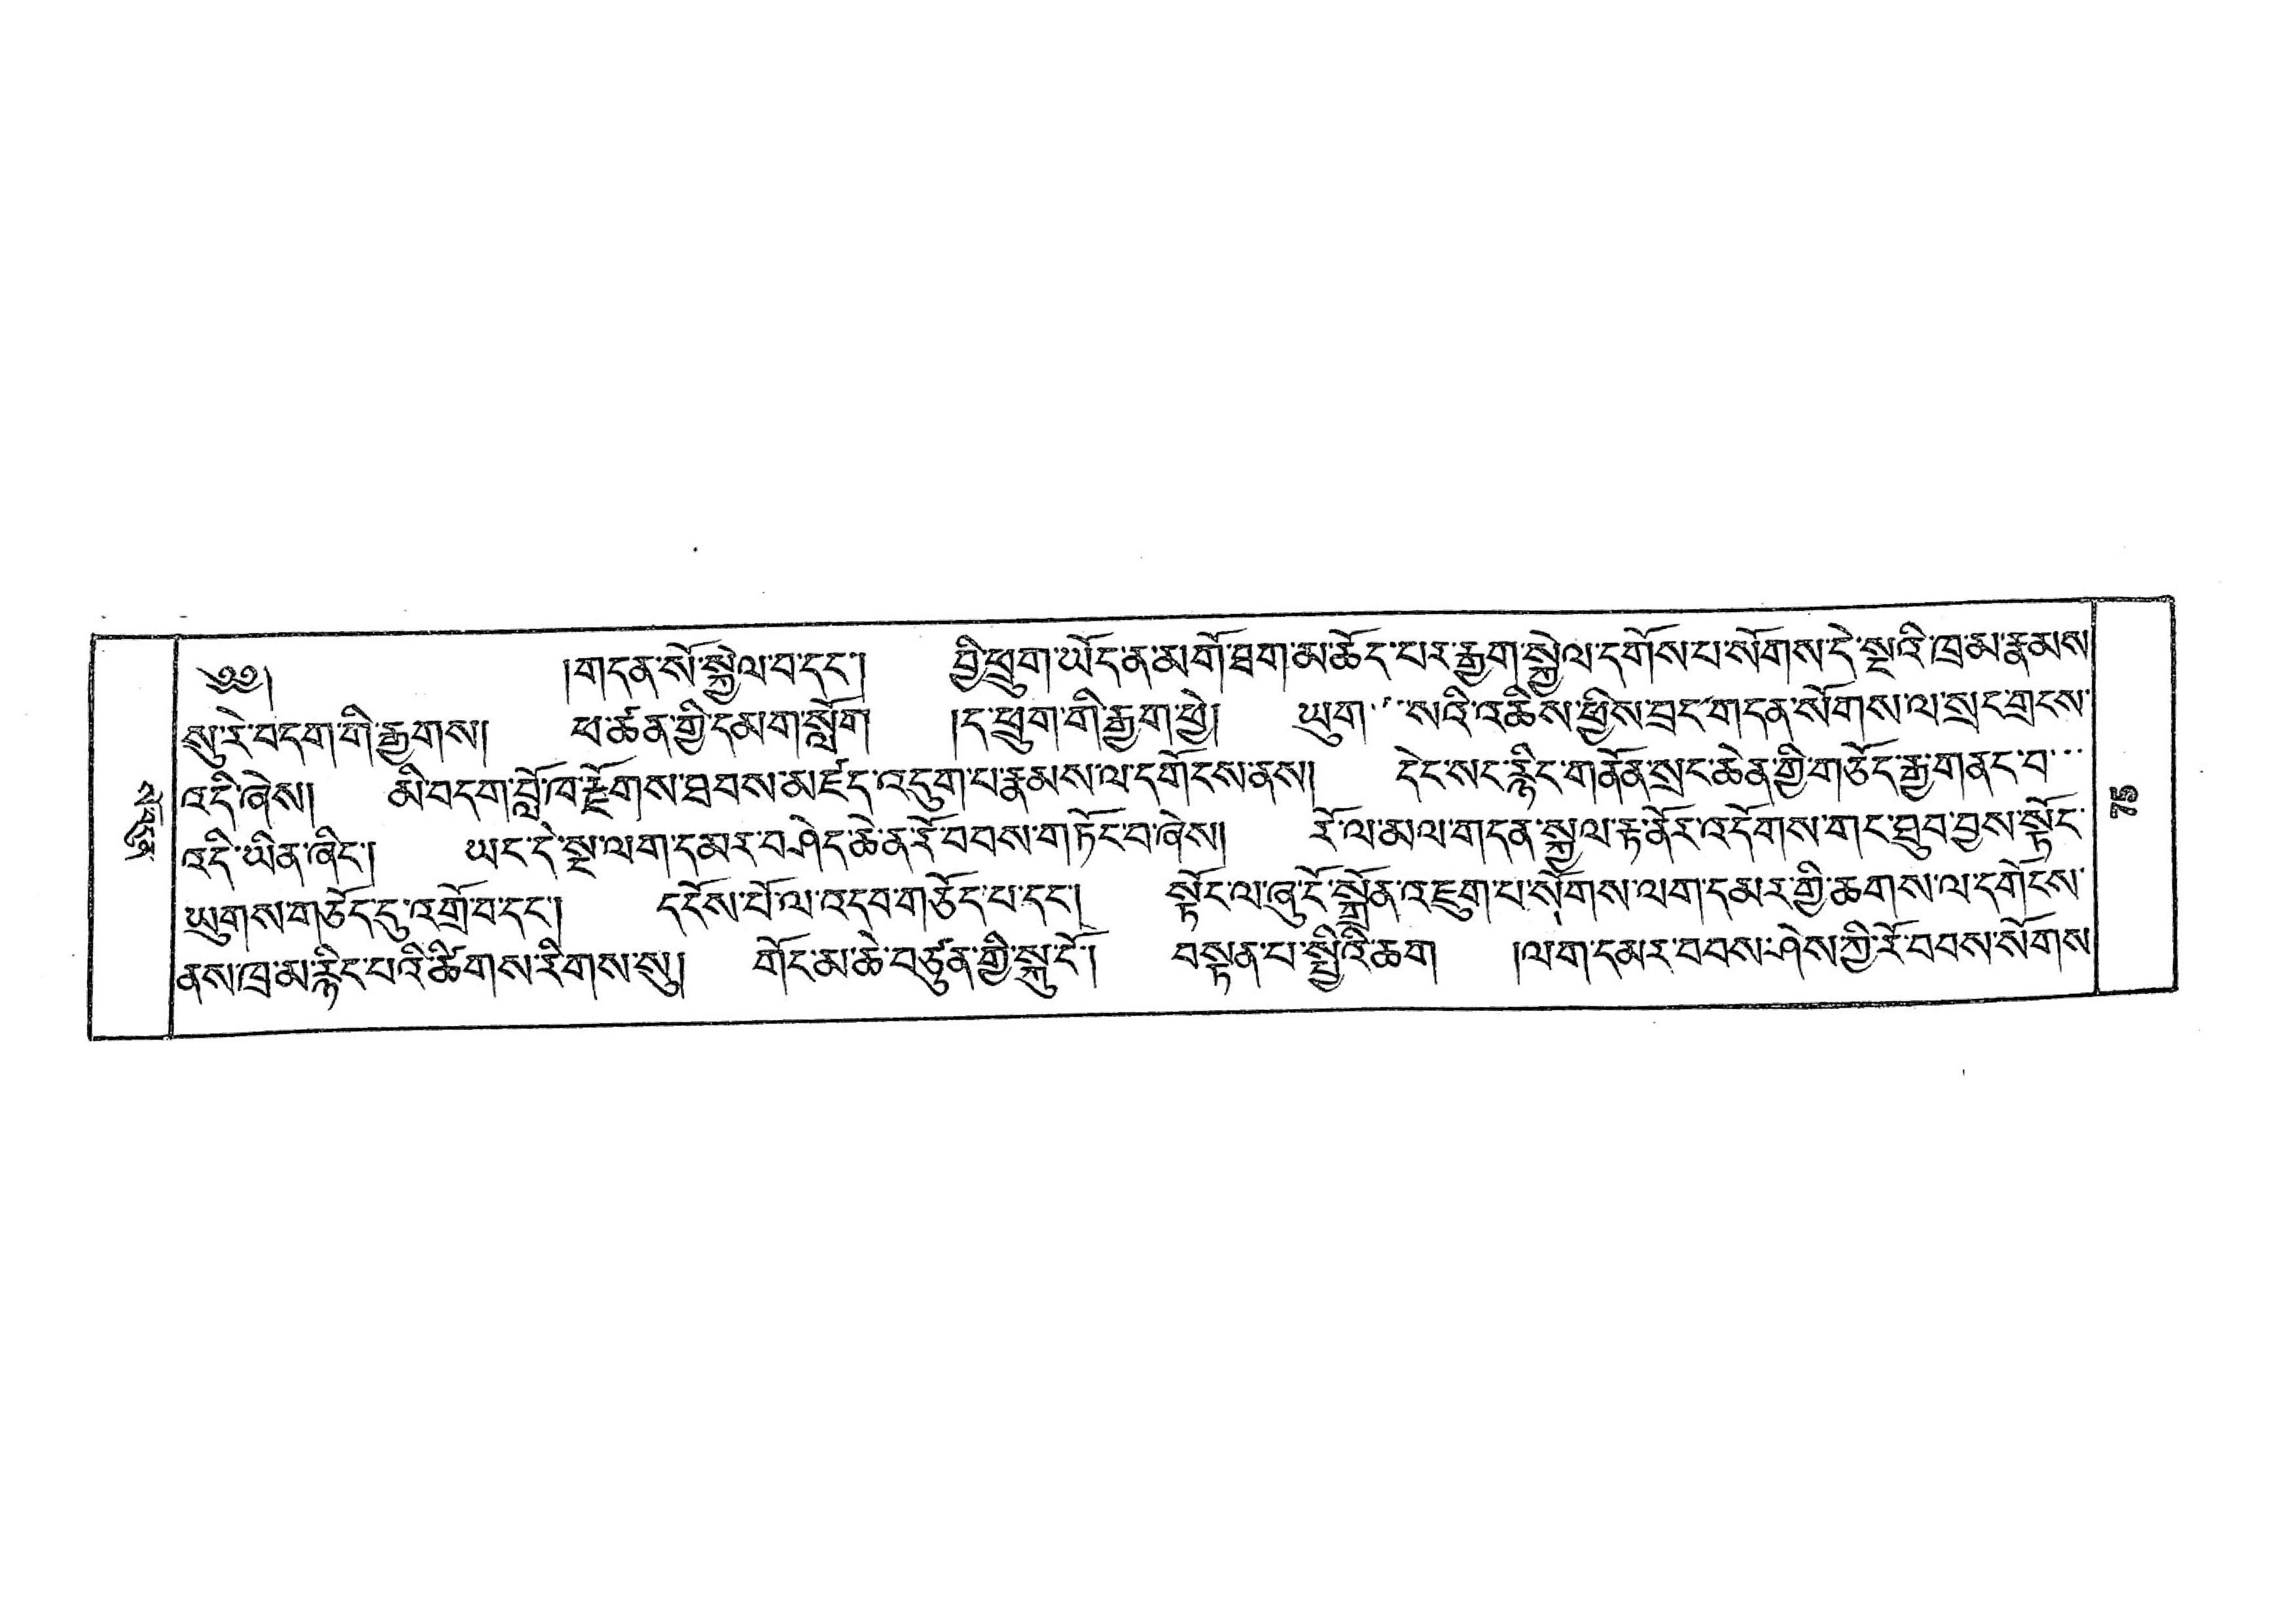 ༄༅། །གདན་སོ་སྐྱེལ་བ་དང་། བྱི་ཕྲུག་ཡོད་ན་མགོ་ཐག་མ་ཆོད་པར་རྒྱག་སྐྱེལ་དགོས་པ་སོགས་དེ་སྔའི་ཁྲམ་རྣམས
སུ་རེ་བདག་གི་རྒྱགས། ཕ་ཚན་གྱི་དམག་སློག །ད་ཕྲུག་གི་རྒྱག་ཕྱེ། ཡུག་་་སའི་འཆིས་ཕྱིས་བྲང་གདན་སོགས་ལ་སྲང་གྲངས་
འདི་ཞེས། མི་བདག་བློ་ཁ་རྫོགས་ཐབས་མཛད་འདུག་པ་རྣམས་ལ་དགོངས་ནས། དེང་སང་རྙིང་གནོན་སྲང་ཆེན་གྱི་གཅོད་རྒྱ་གནང་བ་་་
འདི་ཡིན་ཞིང་། ཡང་དེ་སྔ་ལག་དམར་བཤེད་ཆེན་རོ་བབས་གཏོང་བ་ཞེས། རོ་ལ་མལ་གདན་སྐྱལ་རྟ་ནོར་འདོགས་གང་ཐུབ་བྱས་སྟོང་
ཡུགས་གཅོད་དུ་འགྲོ་བ་དང་། དངོས་པོ་ལ་འདབ་གཅོད་པ་དང་། སྟོང་ལ་ཞུ་ངོ་སྒྲོན་འཇུག་པ་སོགས་ལག་དམར་གྱི་ཆགས་ལ་དགོངས་
ནས་ཁྲམ་རྙིང་པའི་ཚིགས་རིགས་སུ། གོང་མ་ཆེ་བཙུན་གྱི་སྐུ་ངོ་། བསྟན་པ་སྤྱིའི་ཆག །ལག་དམར་བབས་ཤེས་ཀྱི་རོ་བབས་སོགས